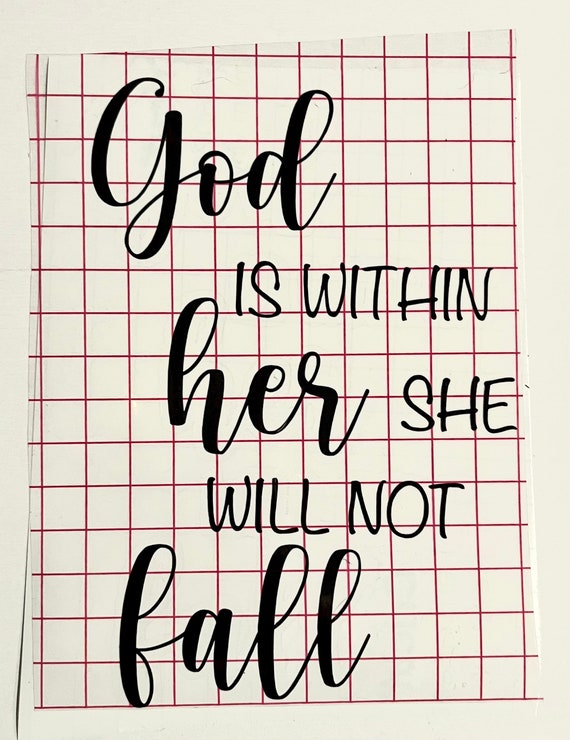 God
IS WITHIN
her SHE
WILL NOT
fall